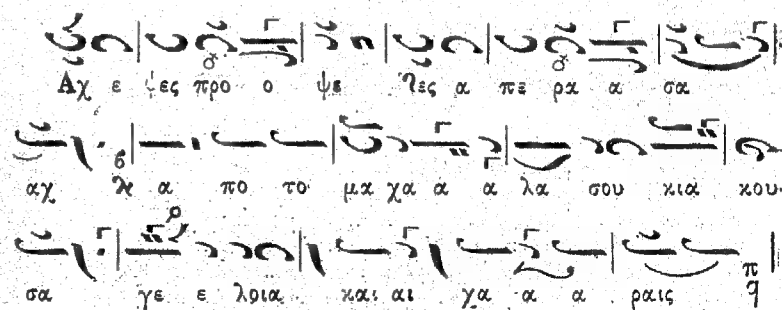 Αχ ε ψες προ ο ψε ψες α πε ρα α σα
αχ α πο το μα χα α α λα σου κια κου
σα γε ε λοια και αι χα α α ραις